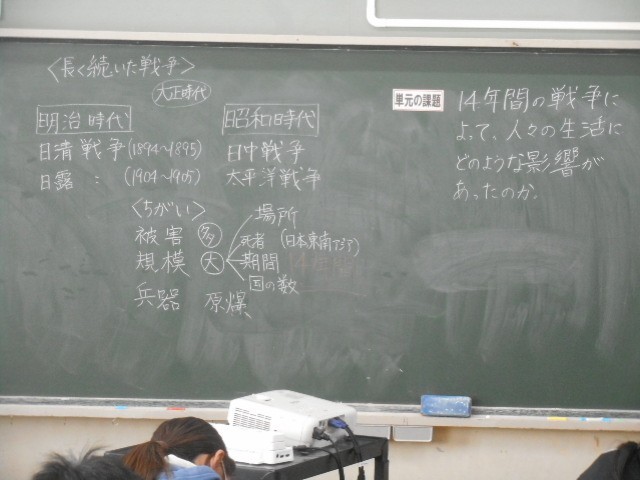 〈長く続いた戦争〉
大正時代
明治時代
日清戦争(1894〜1895)
日露 〃 (1904〜1905)
昭和時代
日中戦争
太平洋戦争
〈ちがい〉
被害 多
規模 大
場所
死者 (日本東南アジア)
期間 14年間
国の数
兵器 原爆
単元の課題
14年間の戦争に
よって、人々の生活に
どのような影響が
あったのか。